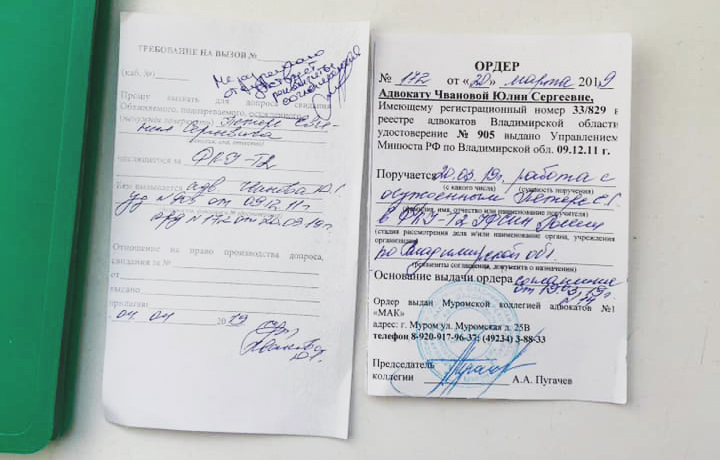 ТРЕБОВАНИЕ НА ВЫЗОВ №
(каб. №)
Прошу вызвать для допроса, свидания
Обвиняемого, подозреваемого, осужденного
числящегося за ФКУ-Т2
Кем вызывается адв Чванова Ю.С.
уд №905 от 09.12.11г
орд №172 от 20.03.19г.
Отношение на право производства допроса,
свидания за №
от
выдано
04.04 2019
ОРДЕР
№ 172 от «20» марта 2019
Адвокату Чвановой Юлии Сергеевне,
Имеющему регистрационный номер 33/829 в
реестре адвокатов Владимирской области
удостоверение № 905 выдано Управлением
Минюста РФ по Владимирской обл. 09.12.11 г.
Поручается 20.03.19г. работа с
(с какого числа) (сущность поручения)
осужденным
(фамилия, имя, отчество или наименование поручителя)
в ФКУ-Т2 УФСИН России
(стадия рассмотрения дела или наименование органа, учреждения
организации)
по Владимирской обл.
(реквизиты соглашения, документа о назначении)
Основание выдачи ордера соглашение
Ордер выдан Муромской коллегией адвокатов №1
«МАК»
адрес: г. Муром ул. Муромская д. 25В
телефон 8-920-917-96-37; (49234) 3-88-33
Председатель
коллегии А.А. Пугачев